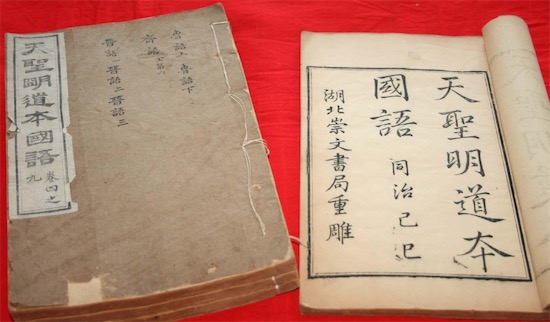 天聖明道本國語
卷四之
九
魯語上 魯語下
齊語
晉語一 晉語二 晉語三
天聖明道本
國語 同治己巳
湖北崇文書局重雕